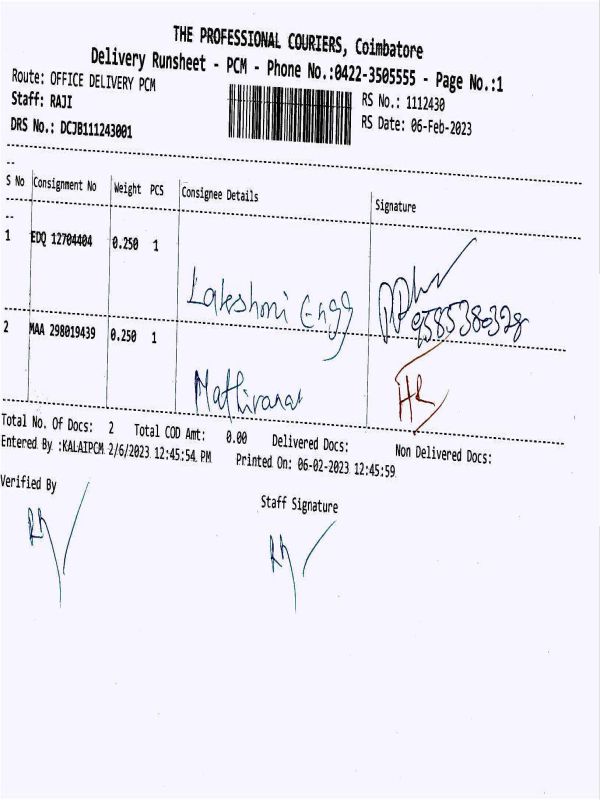 THE PROFESSIONAL COURIERS, Coimbatore
Delivery Runsheet - PCM - Phone No.:0422-3505555 - Page No.:1
Route: OFFICE DELIVERY PCM
Staff: RAJI
RS No.: 1112430
DRS No.: DCJB111243001
RS Date: 06-Feb-2023
--
S No Consignment No Weight PCS Consignee Details Signature
--
1 EDQ 12704404 0.250 1
Lakeshmi Engg
2 MAA 298019439 0.250 1
Total No. Of Docs: 2 Total COD Amt: 0.00 Delivered Docs: Non Delivered Docs:
Entered By :KALAIPCM 2/6/2023 12:45:54 PM Printed On: 06-02-2023 12:45:59
Verified By Staff Signature